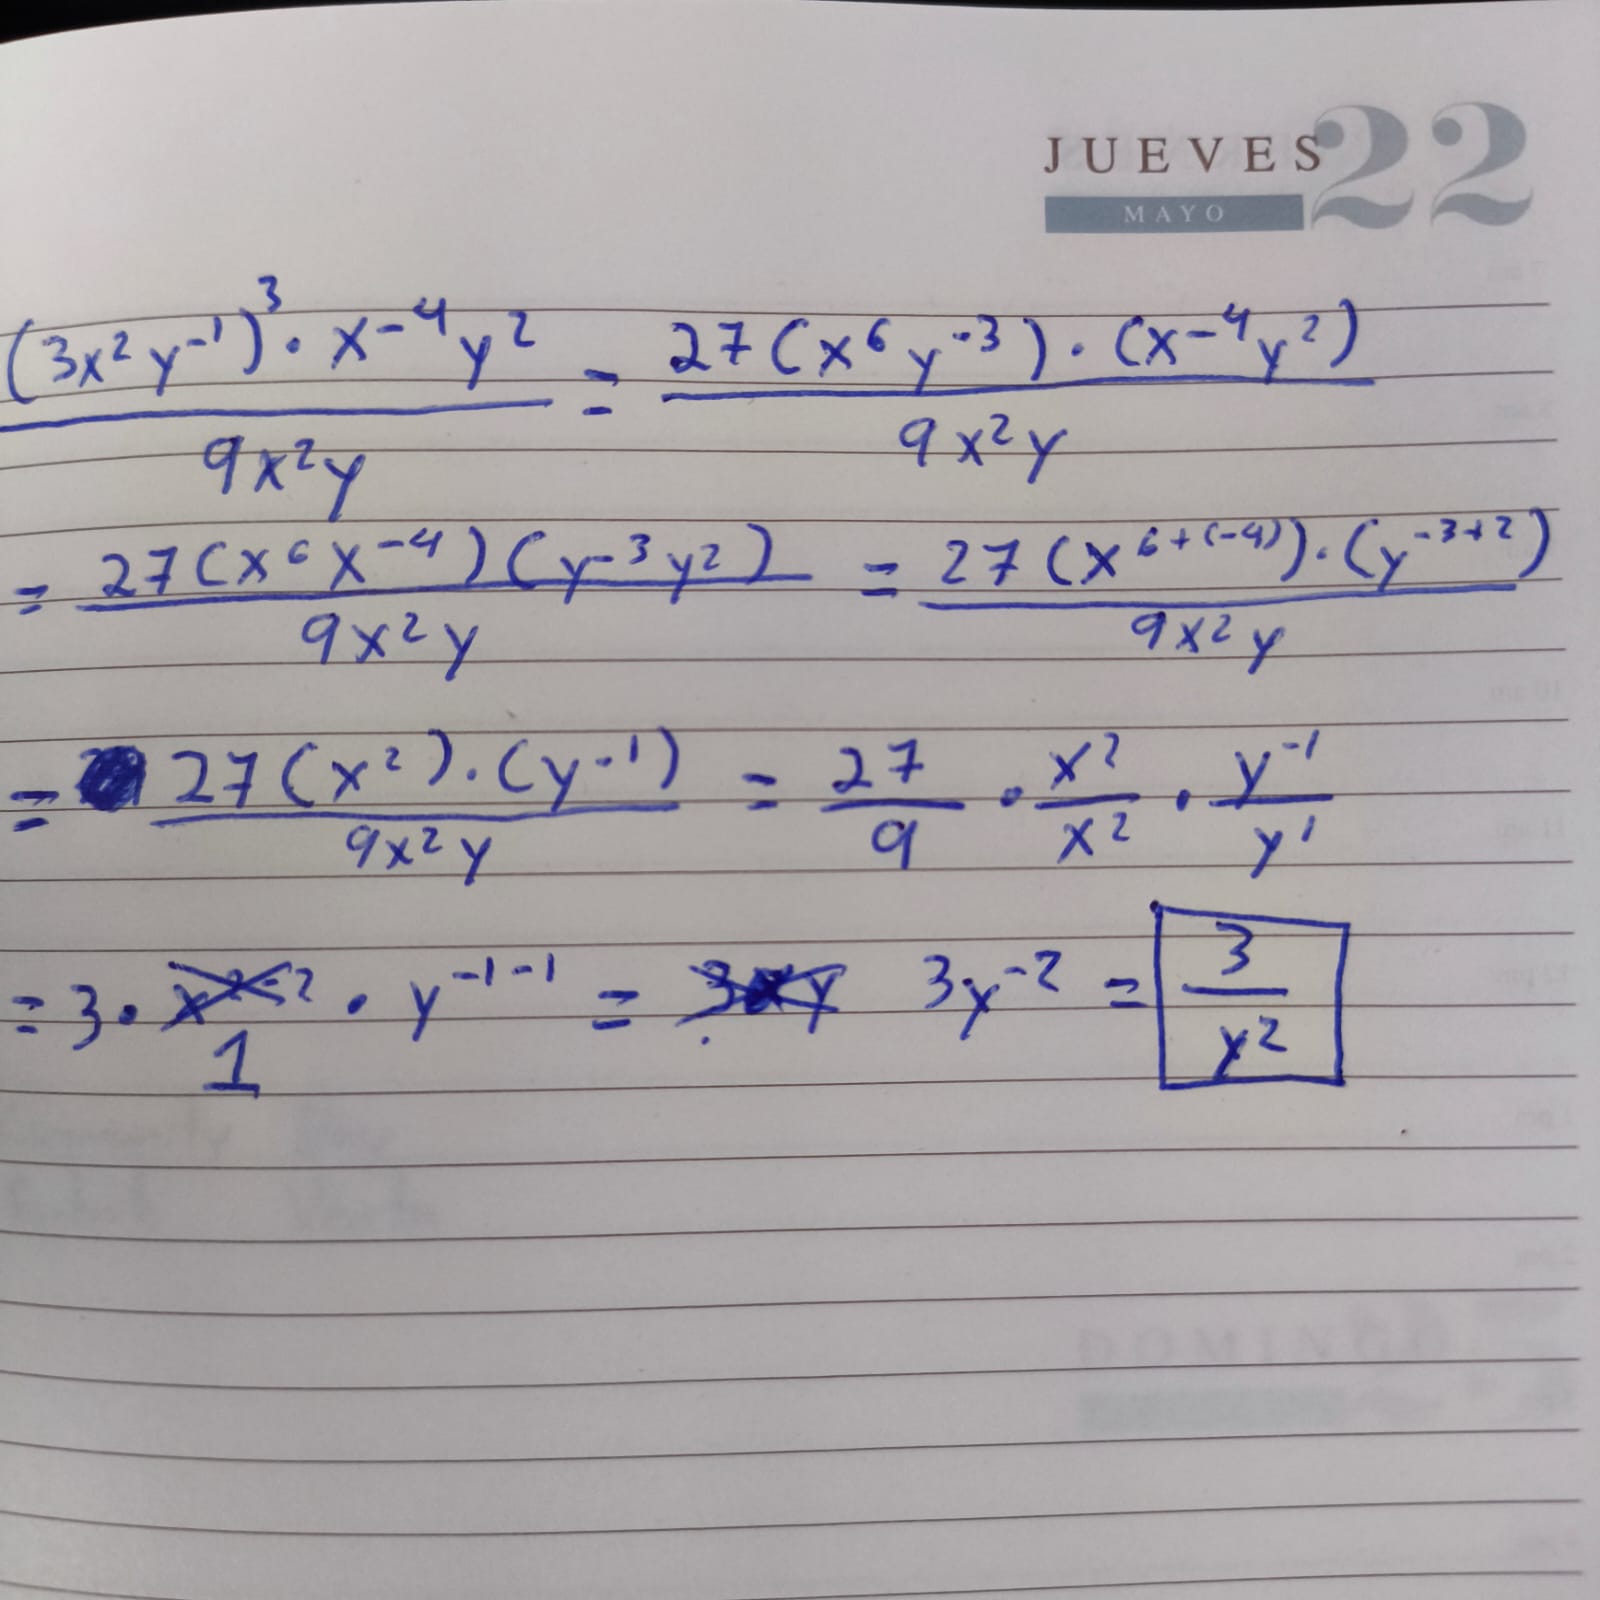 JUEVES 22
MAYO
(3x²y⁻¹)³ · x⁻⁴y² / 9x²y = 27(x⁶y⁻³) · (x⁻⁴y²) / 9x²y
= 27(x⁶x⁻⁴)(y⁻³y²) / 9x²y = 27(x⁶⁺⁽⁻⁴⁾) · (y⁻³⁺²) / 9x²y
= 27(x²) · (y⁻¹) / 9x²y = 27/9 · x²/x² · y⁻¹/y¹
= 3 · x²⁻² · y⁻¹⁻¹ = 3y⁻² = 3/y²
1